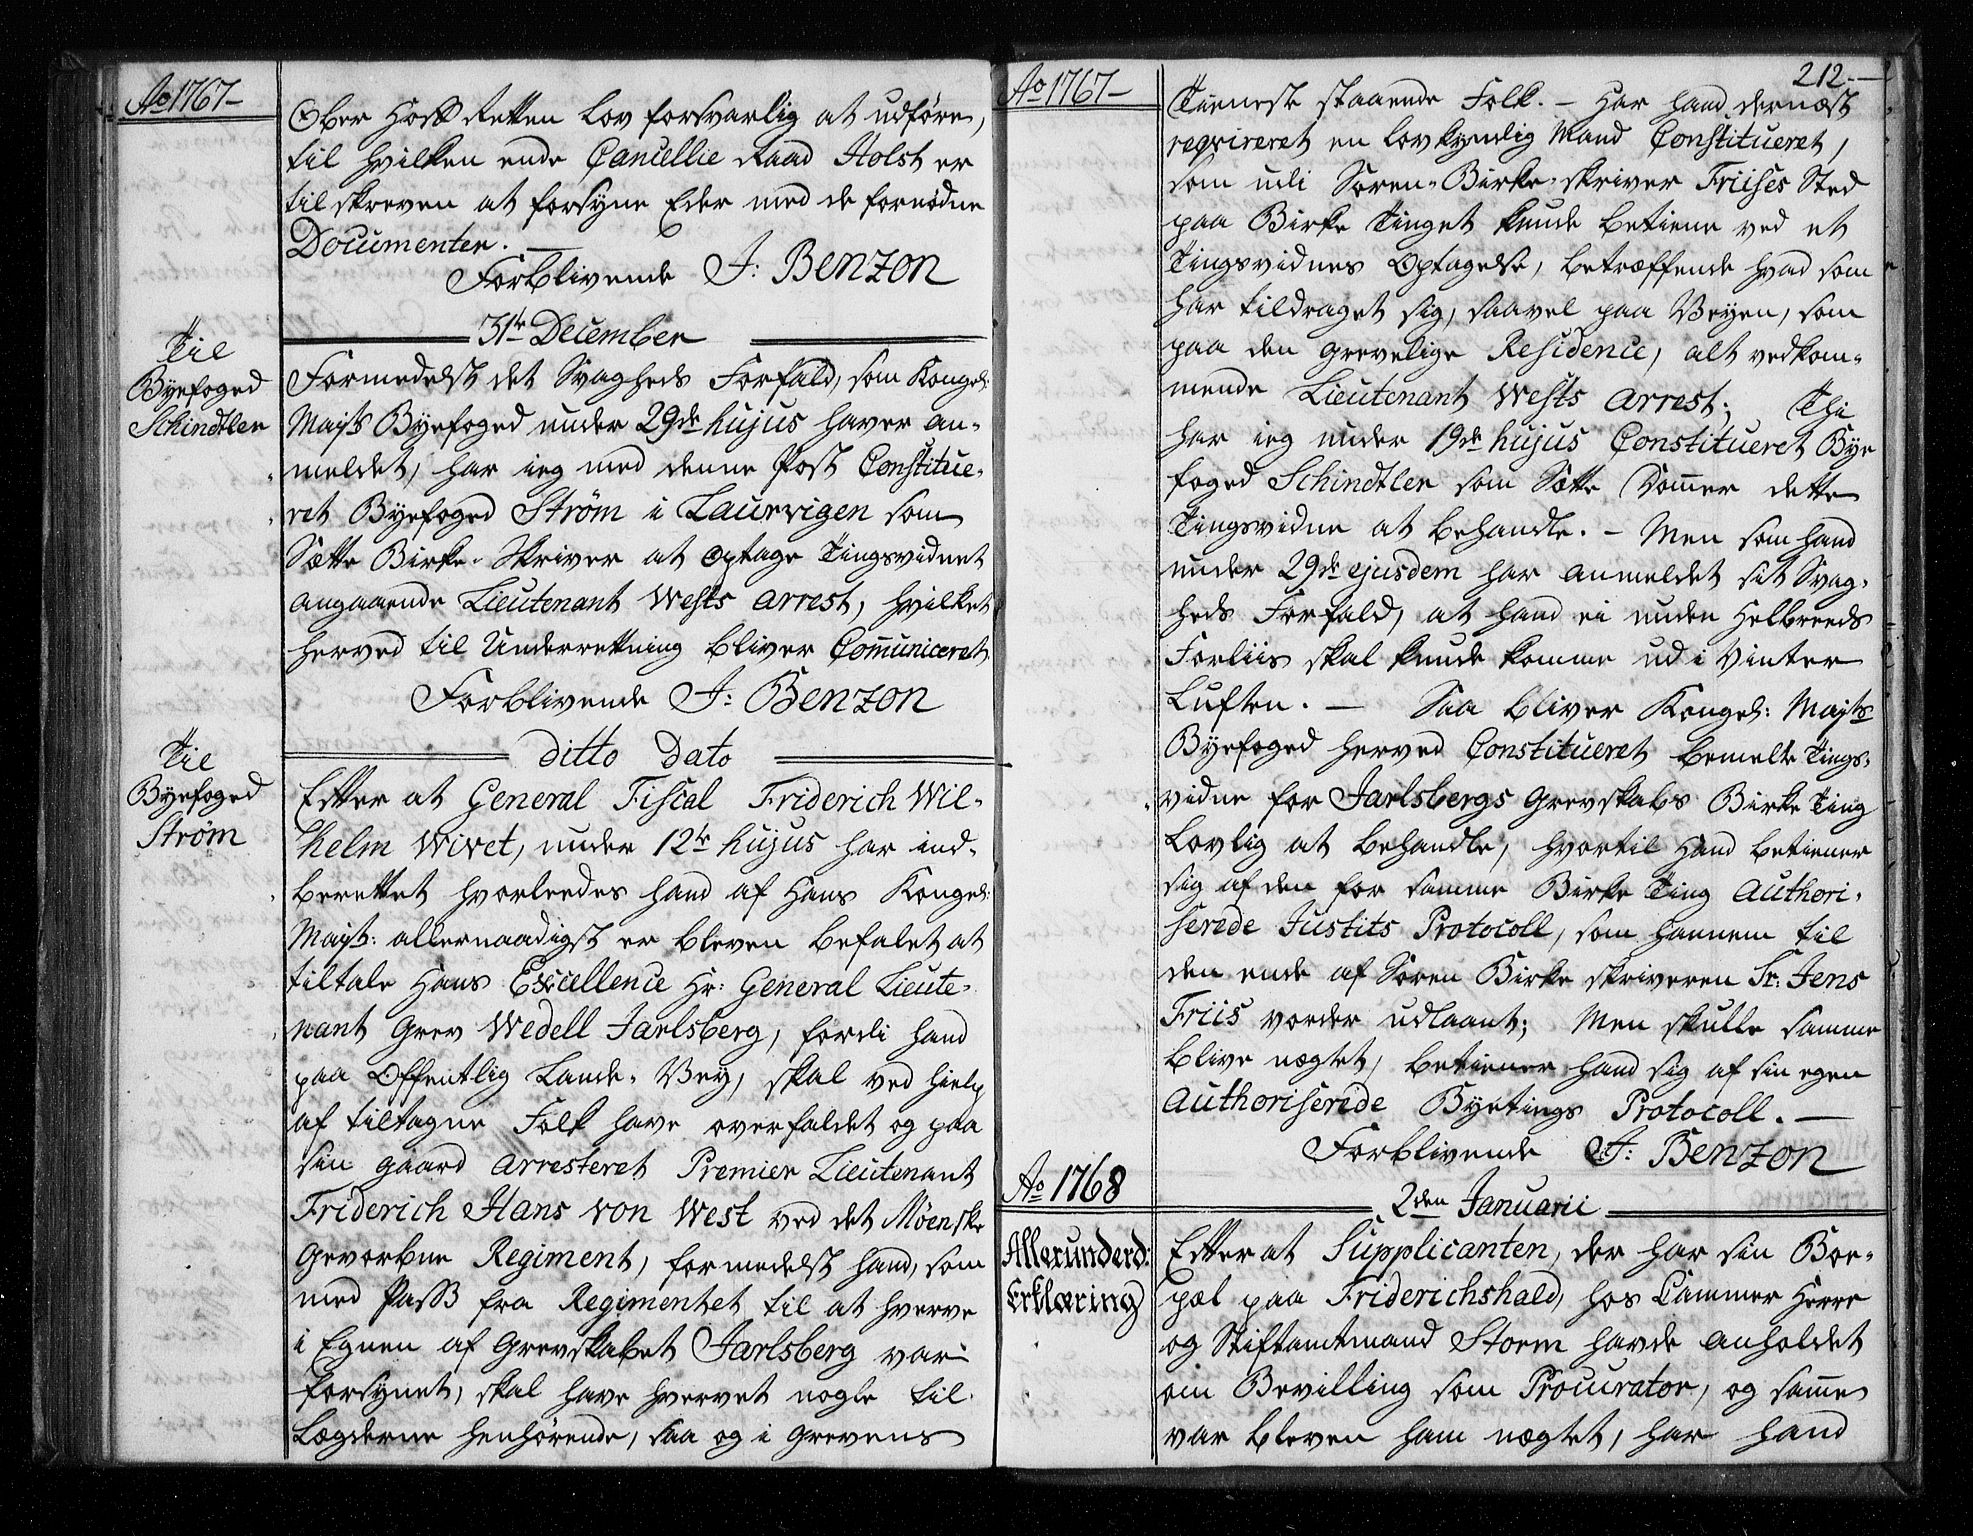 Ao 1767-
Ober Hoff Retten lov forsvarlig at udføre,
til hvilken ende Cancellie Raad Holst er
tilskreven at forsyne Eder med de fornødne
Documenter. —
Forblivende J: Benzon
31te December
Til
Byefoged
Schindtler
Formedelst det Svagheds Forfald, som Kongel:
Mayts Byefoged under 29de hujus haver an-
meldet, har ieg med denne Post Constitue-
ret Byefoged Strøm i Laurvigen som
Sætte Birke-Skriver at optage Tingsvidnet
angaaende Lieutenant Wests Arrest, hvilket
herved til Underretning bliver Communiceret
Forblivende J: Benzon
ditto dato
Til
Byefoged
Strøm
Efter at General Fiscal Friderich Wil-
helm Wivet, under 12te hujus har ind-
berettet hvorledes hand af Hans Kongel:
Mayts: allernaadigst er bleven befalet at
tiltale Hans Excellence Hr: General Lieute-
nant Grev Wedell Jarlsberg, fordi hand
paa Offentlig Lande-Vey, skal ved hielp
af tiltagne Folk have overfaldet og paa
sin gaard Arresteret Premier Lieutenant
Friderich Hans von West ved det Møenske
Gevorbne Regiment, formedelst hand, som
med Pass fra Regimentet til at hverve
i Egnen af Grevskabet Jarlsberg var
forsynet, skal have hvervet nogle til
Lægderne henhørende, saa og i Grevens
212.—
Ao 1767-
Tieneste staaende Folk. — Har hand dernæst
reqvireret en lovkyndig Mand Constitueret,
som udi Soren-Birke-skriver Friises Sted
paa Birke Tinget kunde betiene ved et
Tingsvidnes Optagelse, betræffende hvad som
har tildraget sig, saavel paa Veyen, som
paa den grevelige Residence, alt vedkom-
mende Lieutenant Wests Arrest; Thi
har ieg under 19de hujus Constitueret Bye
foged Schindtler som Sætte Dommer dette
Tingsvidne at behandle. — Men som hand
under 29de ejusdem har anmeldet sit Svag-
heds Forfald, at hand ei uden Helbreeds
Forliis skal kunde komme ud i Vinter
Luften. — Saa bliver Kongel: Mayts
Byefoged herved Constitueret bemelte Tings-
vidne for Jarlsbergs Grevskabs Birke Ting
Lovlig at behandle, hvortil Hand betiener
sig af den for samme Birke Ting Authori-
serede Justits Protocoll, som hannem til
den ende af Soren Birke skriveren Sr: Jens
Friis vorder udlaant; Men skulle samme
blive nægtet, betiener hand sig af sin egen
Authoriserede Byetings Protocoll. —
Forblivende J: Benzon
Ao 1768
2den Januarii
Allerunderd:
Erklæring
Efter at Supplicanten, der har sin Boe-
pæl paa Friderichshald, hos Cammer Herre
og Stiftamtmand Storm havde anholdet
om Bevilling som Procurator, og samme
var bleven ham nægtet, har hand